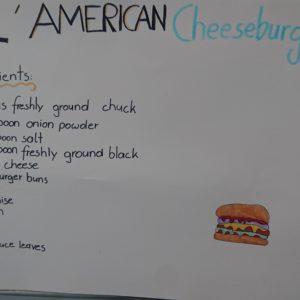 L' AMERICAN Cheeseburg
ients:
s freshly ground chuck
poon onion powder
poon salt
poon freshly ground black
cheese
urger buns
ise
uce leaves